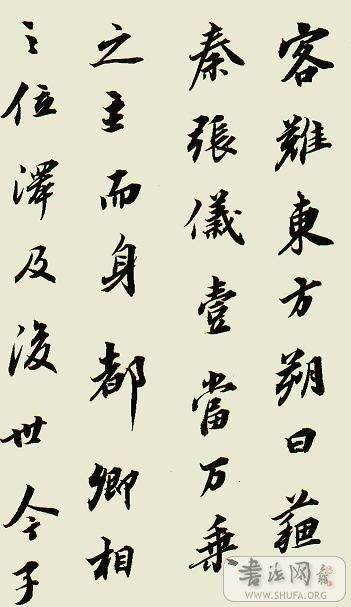 客難東方朔曰蘇
秦張儀壹當万乘
之主而身都卿相
之位澤及後世今子
书法网
WWW.SHUFA.ORG